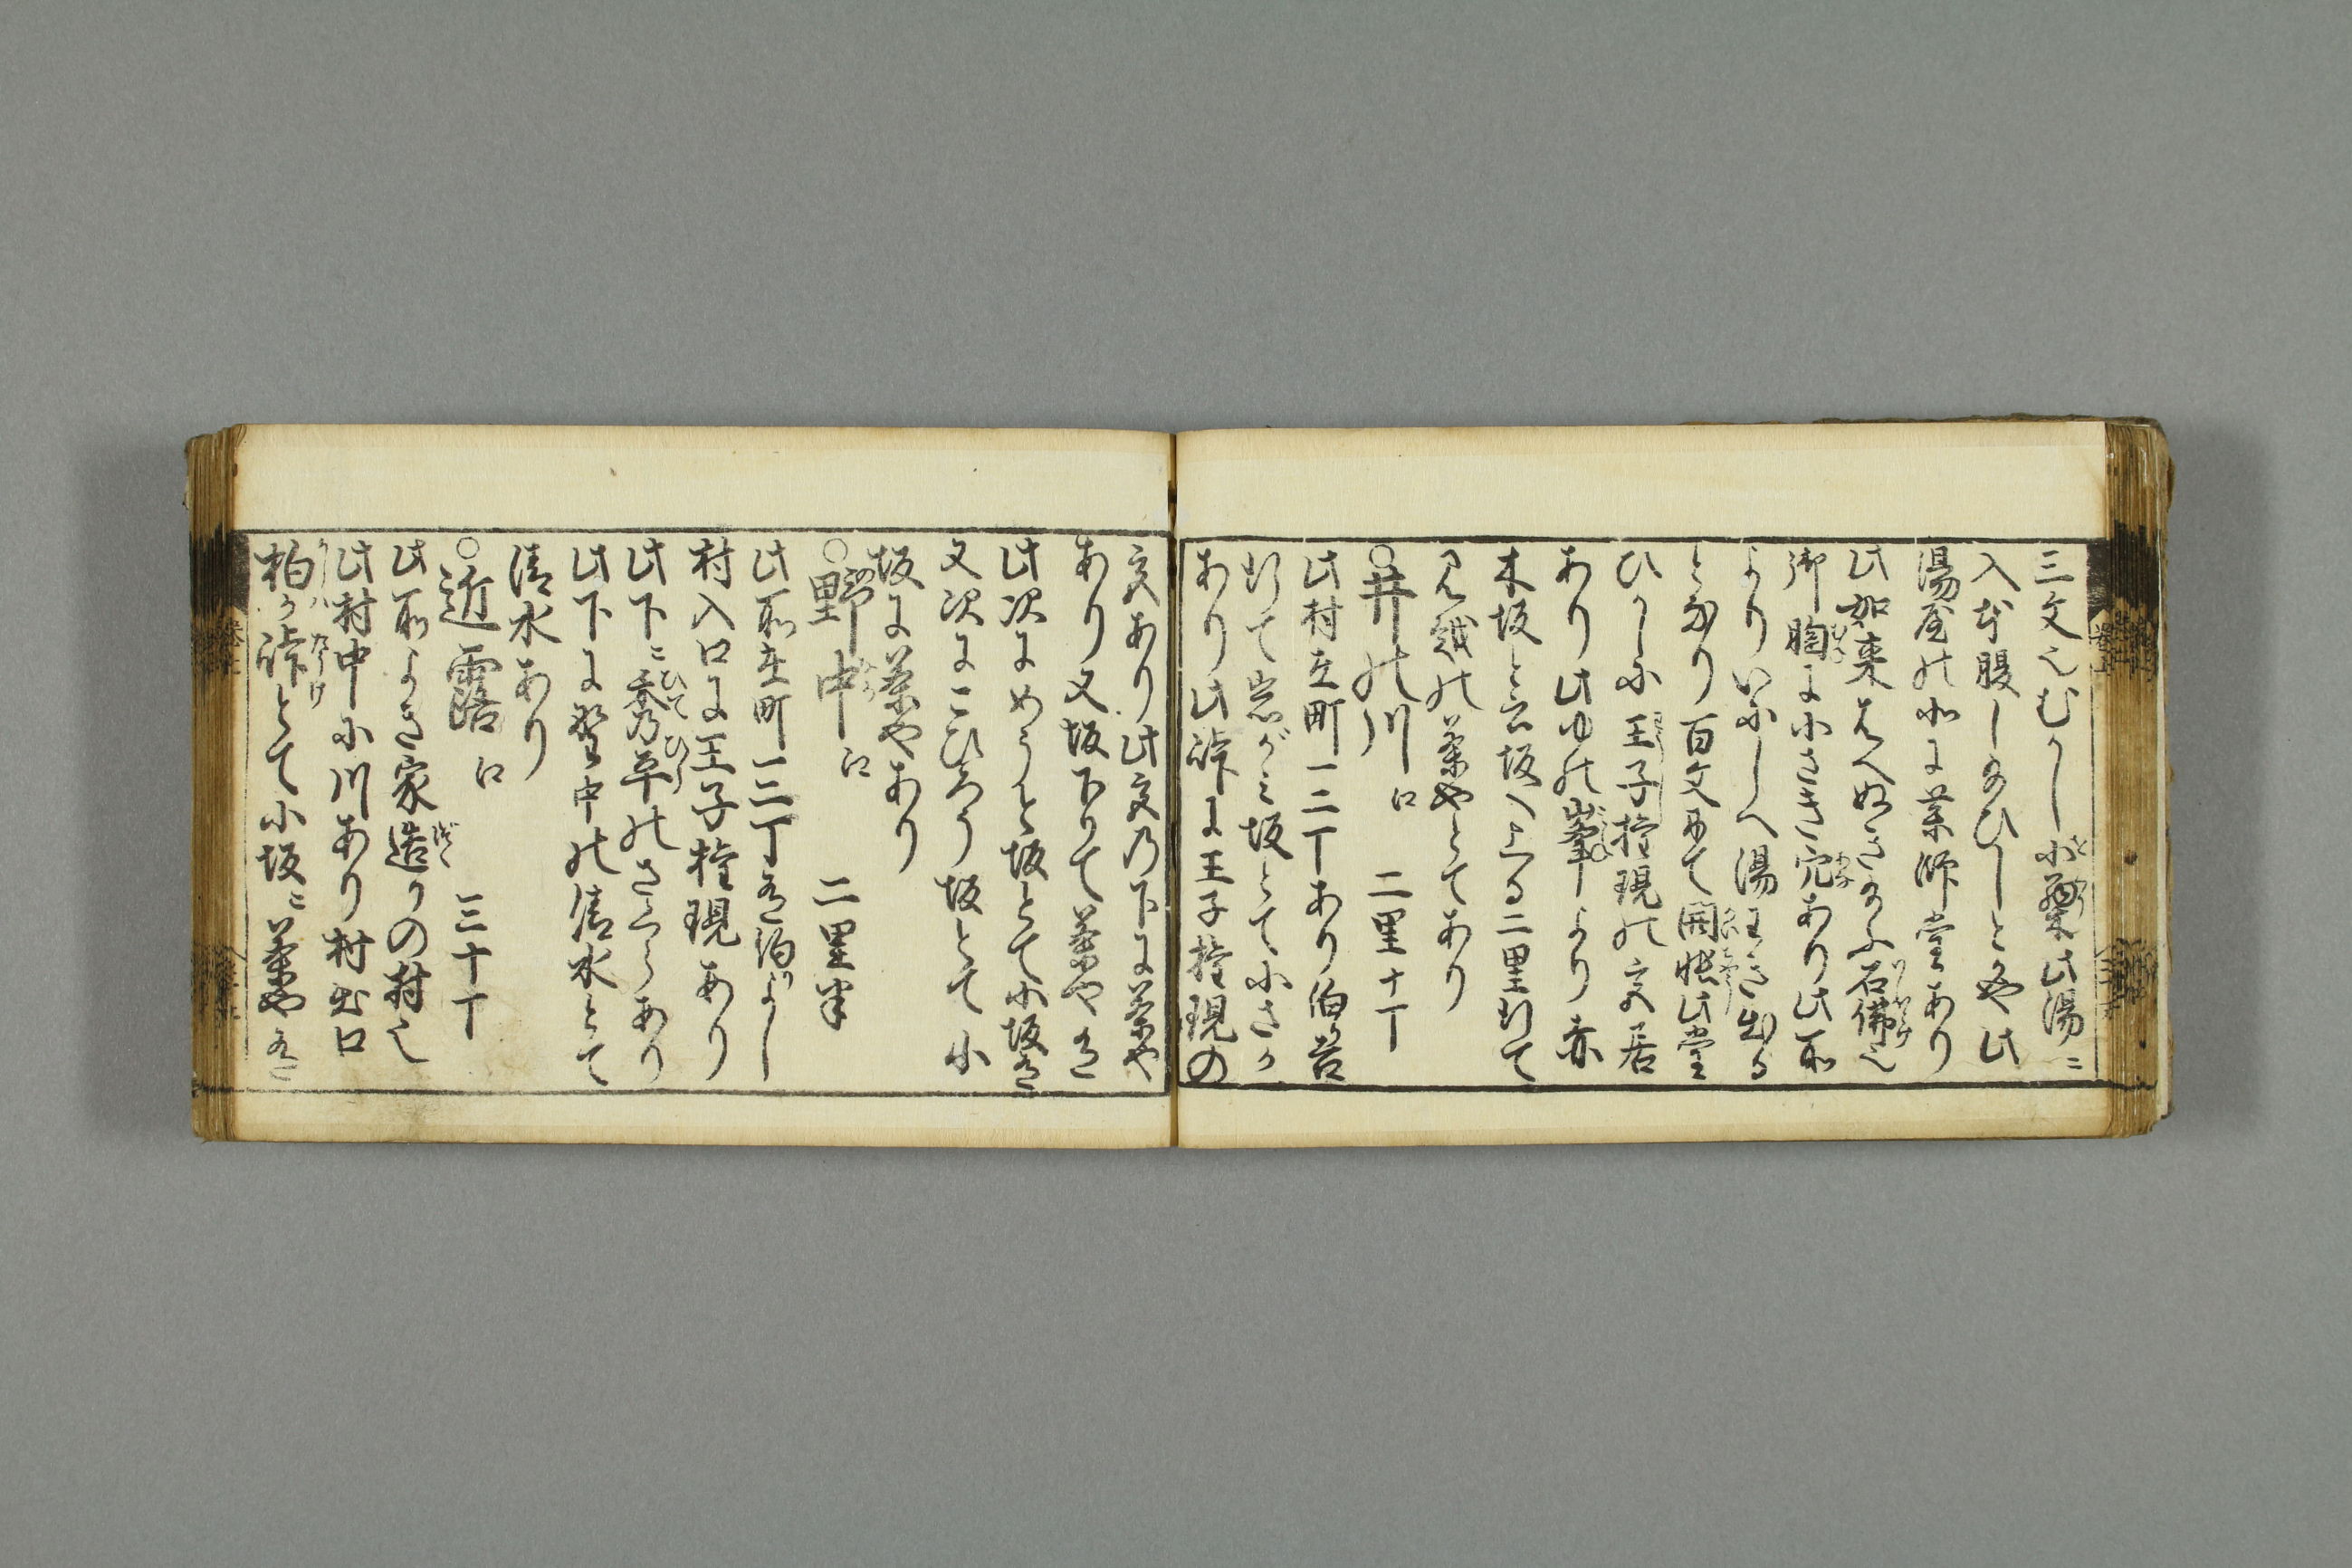 三文也むかし小栗此湯ニ
入本腹し給ひしとかや此
湯屋の北に薬師堂あり
此如来はへぬき給ふ石佛也
御胸に小さき穴あり此所
よりいにしへ湯わき出る
となり百文出て開帳此堂
ひかしに王子権現の宮居
あり此ゆの峯より赤
木坂と云坂へ上る二里行て
見越の茶やとてあり
○井の川 二里十丁
此村在町一二丁あり泊り吉
行て岩がミ坂とて小さか
あり此峠に王子権現の
宮あり此宮乃下に茶や
あり又坂下りて茶や有
此次にめうと坂とて小坂有
又次にこひろう坂とて小
坂に茶やあり
○野中 二里半
此所在町一二丁有泊りよし
村入口に王子権現あり
此下ニ秀乃平のさくらあり
此下に野中の清水とて
清水あり
○近露 三十丁
此所よき家造りの村也
此村中に川あり村出口
柏か峠とて小坂ニ茶や有